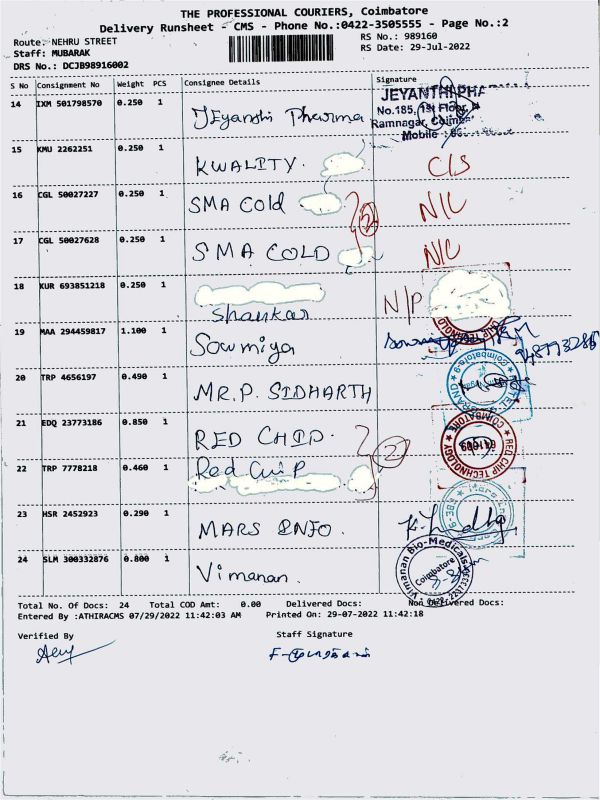 THE PROFESSIONAL COURIERS, Coimbatore
Delivery Runsheet - CMS - Phone No.:0422-3505555 - Page No.:2
Route: NEHRU STREET
Staff: MUBARAK
DRS No.: DCJB98916002
RS No.: 989160
RS Date: 29-Jul-2022
S No Consignment No Weight PCS Consignee Details Signature
14 IXM 501798570 0.250 1 JEyanthi Pharma
JEYANTHI PHA
No.185, 1st Floor,
Ramnagar, Coimb
Mobile :
15 KMU 2262251 0.250 1 KWALITY. C/S
16 CGL 50027227 0.250 1 SMA Cold N/C
2
17 CGL 50027628 0.250 1 SMA COLD N/C
18 KUR 693851218 0.250 1 Shankar N/P
CHIP TECHNOLO
19 MAA 294459817 1.100 1 Sowmiya
20 TRP 4656197 0.490 1 MR.P. SIDHARTH
Coimbatore
21 EDQ 23773186 0.850 1 RED CHIP.
2
RED CHIP TECHNOLOGY
COIMBATORE
641009
22 TRP 7778218 0.460 1 Red Chip
23 HSR 2452923 0.290 1 MARS INFO.
24 SLM 300332876 0.800 1 Vimanan.
Vimanan Bio-Medicals
Coimbatore
Total No. Of Docs: 24 Total COD Amt: 0.00 Delivered Docs: Non Delivered Docs:
Entered By :ATHIRACMS 07/29/2022 11:42:03 AM Printed On: 29-07-2022 11:42:18
Verified By Staff Signature